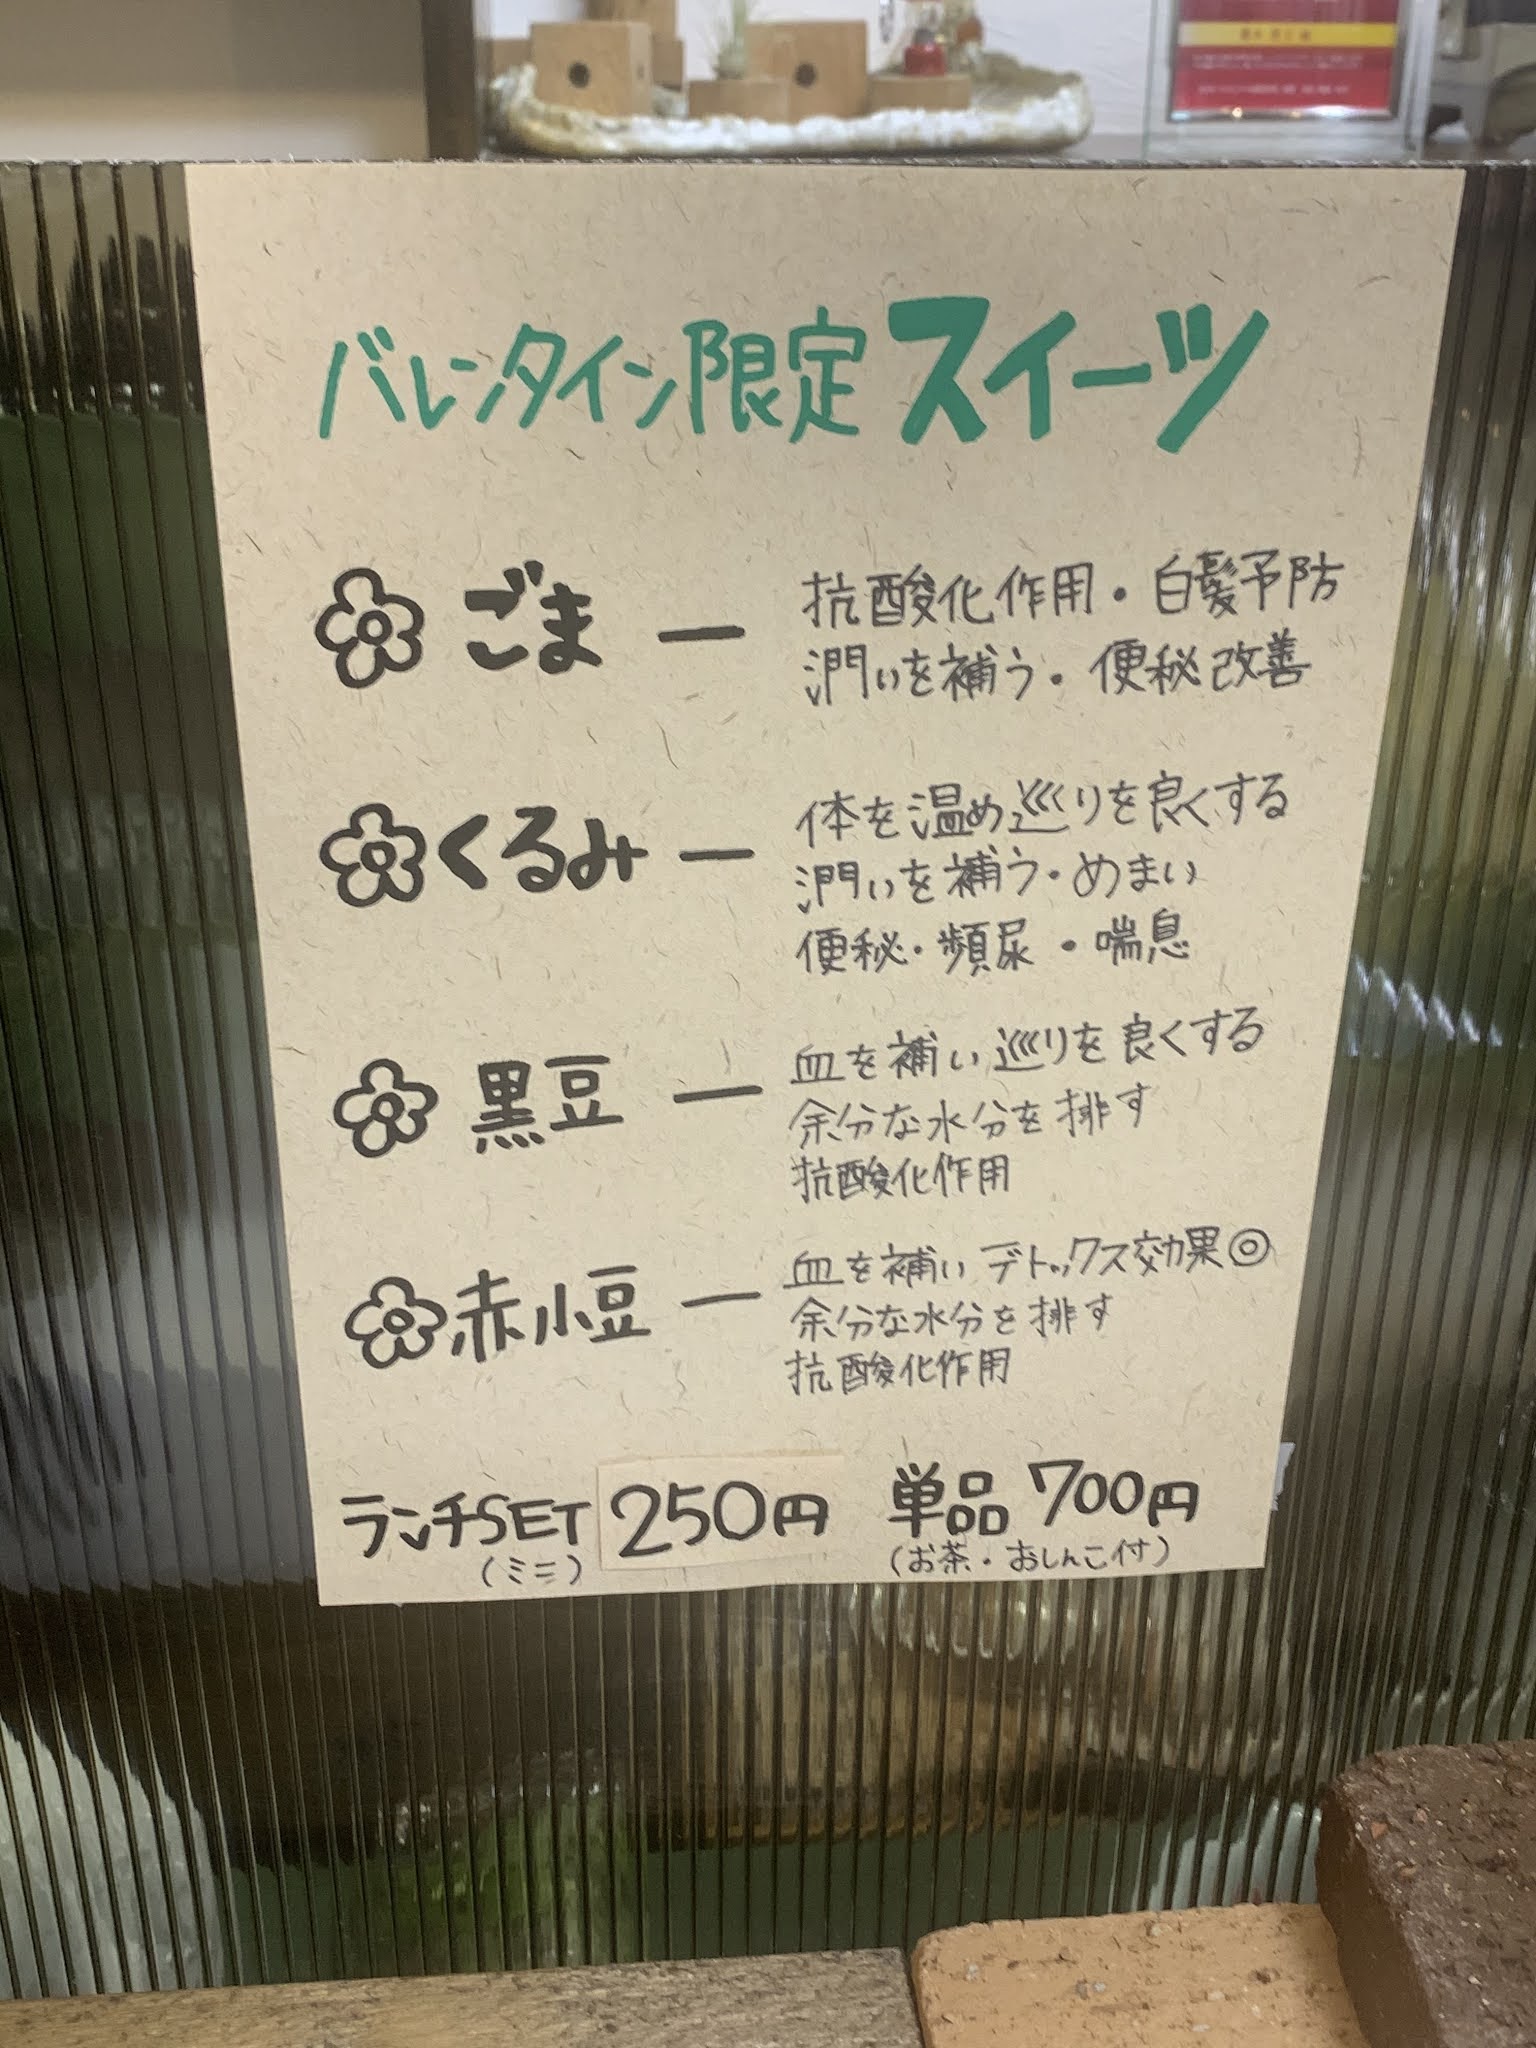 バレンタイン限定スイーツ
ごま ー 抗酸化作用・白髪予防
潤いを補う・便秘改善
くるみ ー 体を温め巡りを良くする
潤いを補う・めまい
便秘・頻尿・喘息
黒豆 ー 血を補い巡りを良くする
余分な水分を排す
抗酸化作用
赤小豆 ー 血を補いデトックス効果◎
余分な水分を排す
抗酸化作用
ランチSET 250円 単品 700円
(ミニ) (お茶・おしんこ付)